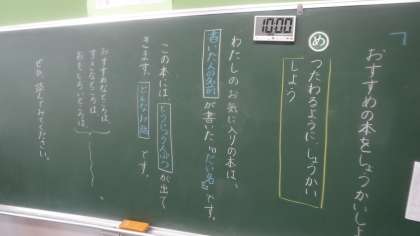 「おすすめの本をしょうかいしよ
め
つたわるように しょうかい
しよう
10:00
わたしのお気に入りの本は、
書いた人の名前が書いた『だい名』です。
この本にはとうじょう人ぶつが出て
きます。どんなお話です。
おすすめなところは、
すきなところは、
おもしろいところは
。
ぜひ、読んでみてください。